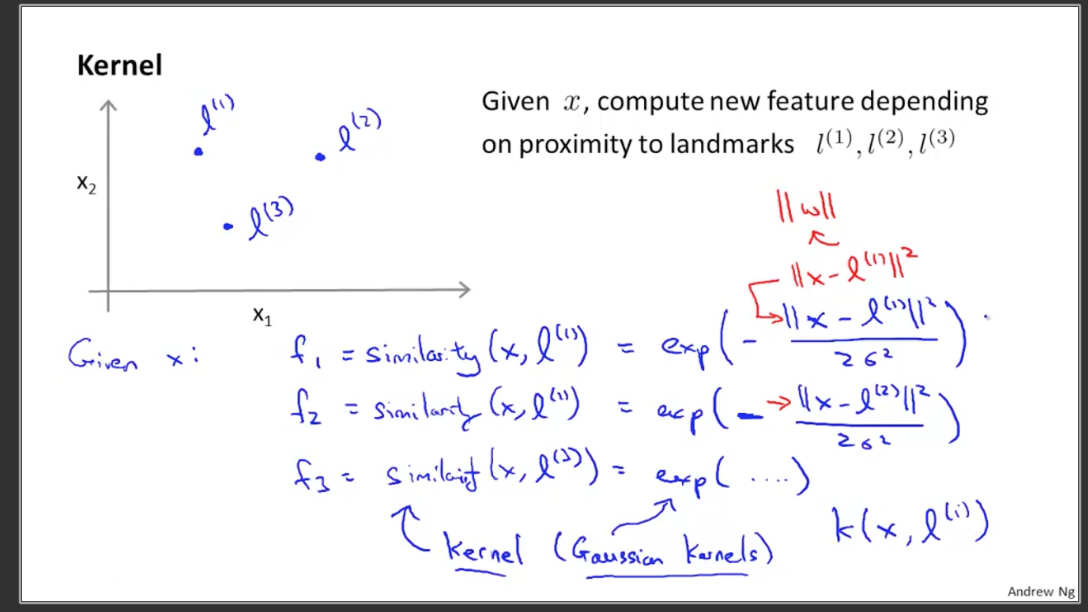 Kernel
l⁽¹⁾
l⁽²⁾
l⁽³⁾
x₂
x₁
Given x, compute new feature depending
on proximity to landmarks l⁽¹⁾, l⁽²⁾, l⁽³⁾
||w||
||x - l⁽¹⁾||²
Given x: f₁ = similarity(x, l⁽¹⁾) = exp(- ||x - l⁽¹⁾||² / 2σ²)
f₂ = similarity(x, l⁽²⁾) = exp(- ||x - l⁽²⁾||² / 2σ²)
f₃ = similarity(x, l⁽³⁾) = exp(....)
kernel (Gaussian kernels)
k(x, l⁽ⁱ⁾)
Andrew Ng